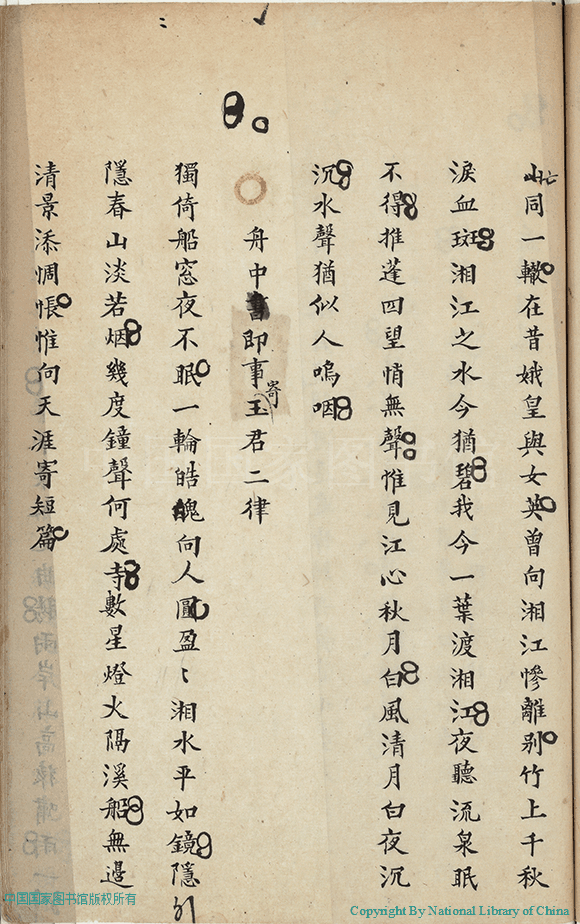 山同一轍在昔娥皇與女英曾向湘江慘離别竹上千秋
淚血斑湘江之水今猶碧我今一葉渡湘江夜聽流泉眠
不得推蓬四望悄無聲惟見江心秋月白風清月白夜沉
沉水聲猶似人嗚咽
舟中書即事寄玉君二律
獨倚船窓夜不眠一輪皓魄向人圓盈〻湘水平如鏡隱
隱春山淡若烟幾度鐘聲何處寺數星燈火隔溪船無邉
清景添惆悵惟向天涯寄短篇
中国国家图书馆版权所有
Copyright By National Library of China